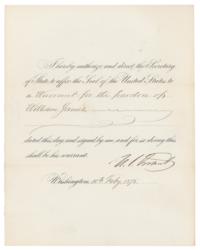 I hereby authorize and direct the Secretary
of State to affix the Seal of the United States to
a Warrant for the pardon of
William James
dated this day and signed by me and for so doing this
shall be his warrant.
U. S. Grant
Washington, 10th Feby. 1875.